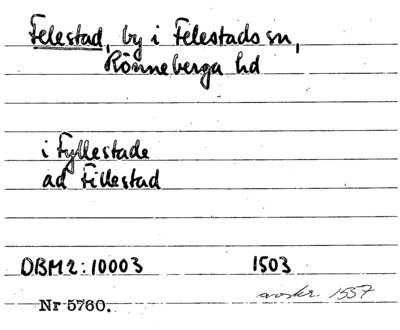 Felestad, by i Felestads sn,
Rönneberga hd
i Fyllestade
ad Fillestad
DBM2:10003 1503
avskr. 1557
Nr 5760.